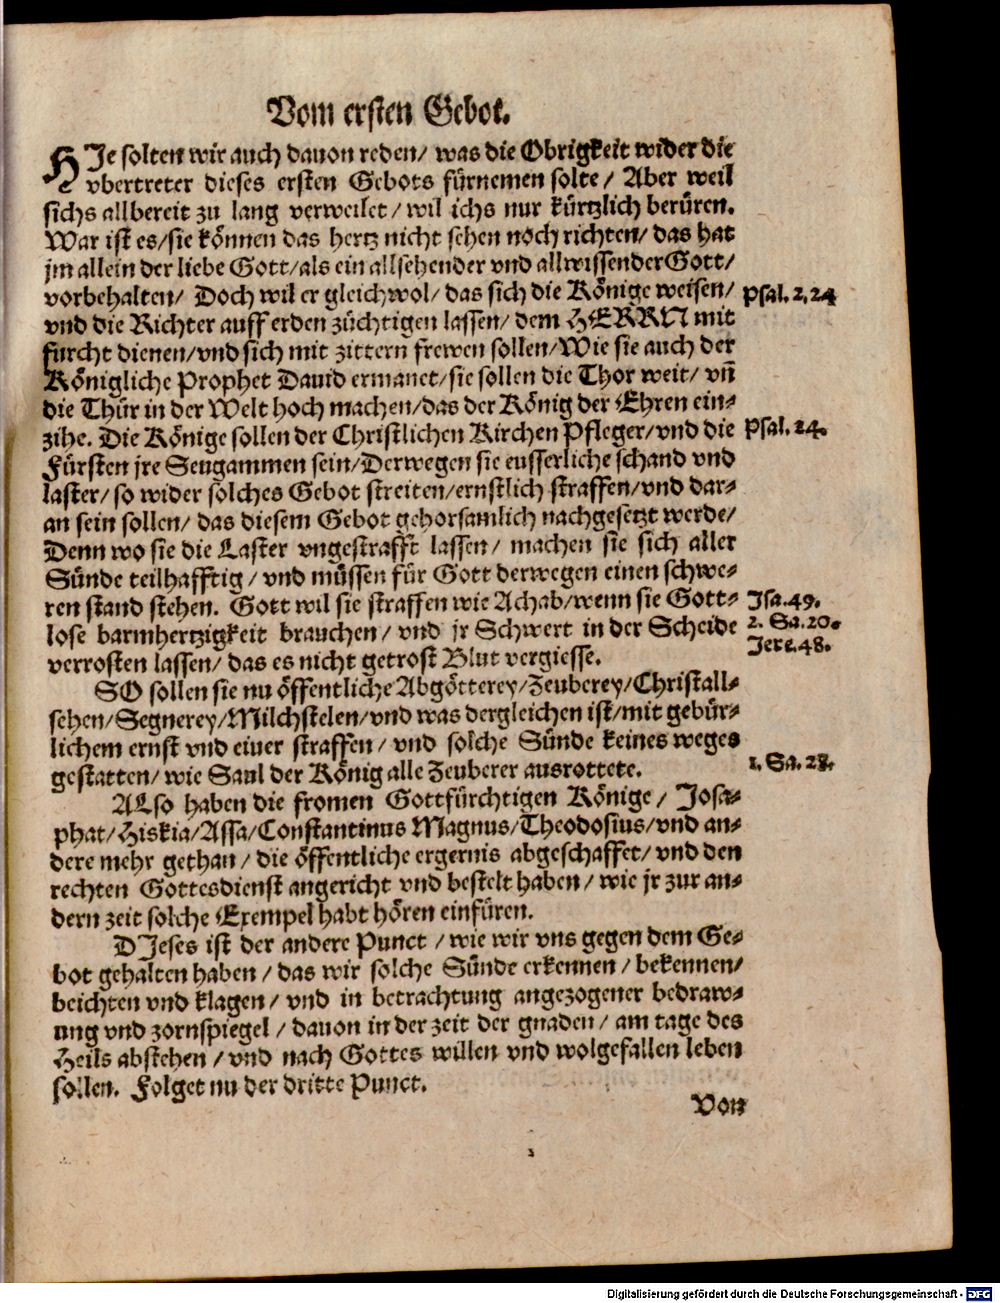 Vom ersten Gebot.
HJe solten wir auch dauon reden/ was die Obrigkeit wider die
vbertreter dieses ersten Gebots fürnemen solte/ Aber weil
sichs allbereit zu lang verweilet/ wil ichs nur kürtzlich berüren.
War ist es/sie können das hertz nicht sehen noch richten/ das hat
jm allein der liebe Gott/als ein allsehender vnd allwissender Gott/
vorbehalten/ Doch wil er gleichwol/ das sich die Könige weisen/
Psal. 2.24
vnd die Richter auff erden züchtigen lassen/ dem HERRN mit
furcht dienen/vnd sich mit zittern frewen sollen/Wie sie auch der
Königliche Prophet Dauid ermanet/sie sollen die Thor weit/ vñ
die Thür in der Welt hoch machen/das der König der Ehren ein-
zihe. Die Könige sollen der Christlichen Kirchen Pfleger/vnd die
Psal. 24.
Fürsten jre Seugammen sein/Derwegen sie eusserliche schand vnd
laster/ so wider solches Gebot streiten/ernstlich straffen/vnd dar-
an sein sollen/ das diesem Gebot gehorsamlich nachgesetzt werde/
Denn wo sie die Laster vngestrafft lassen/ machen sie sich aller
Sünde teilhafftig/ vnd müssen für Gott derwegen einen schwe-
ren stand stehen. Gott wil sie straffen wie Achab/wenn sie Gott-
Jsa. 49.
lose barmhertzigkeit brauchen/ vnd jr Schwert in der Scheide
2. Sa. 20.
Jere. 48.
verrosten lassen/ das es nicht getrost Blut vergiesse.
SO sollen sie nu öffentliche Abgötterey/Zeuberey/Christall-
sehen/Segnerey/Milchstelen/vnd was dergleichen ist/mit gebür-
lichem ernst vnd eiuer straffen/ vnd solche Sünde keines weges
gestatten/ wie Saul der König alle Zeuberer ausrottete.
1. Sa. 28.
ALso haben die fromen Gottfürchtigen Könige/ Josa-
phat/Hiskia/Assa/Constantinus Magnus/Theodosius/vnd an-
dere mehr gethan/ die öffentliche ergernis abgeschaffet/ vnd den
rechten Gottesdienst angericht vnd bestelt haben/ wie jr zur an-
dern zeit solche Exempel habt hören einfüren.
DJeses ist der andere Punct/ wie wir vns gegen dem Ge-
bot gehalten haben/ das wir solche Sünde erkennen/ bekennen/
beichten vnd klagen/ vnd in betrachtung angezogener bedraw-
ung vnd zornspiegel/ dauon in der zeit der gnaden/ am tage des
Heils abstehen/ vnd nach Gottes willen vnd wolgefallen leben
sollen. Folget nu der dritte Punct.
Von
Digitalisierung gefördert durch die Deutsche Forschungsgemeinschaft - DFG